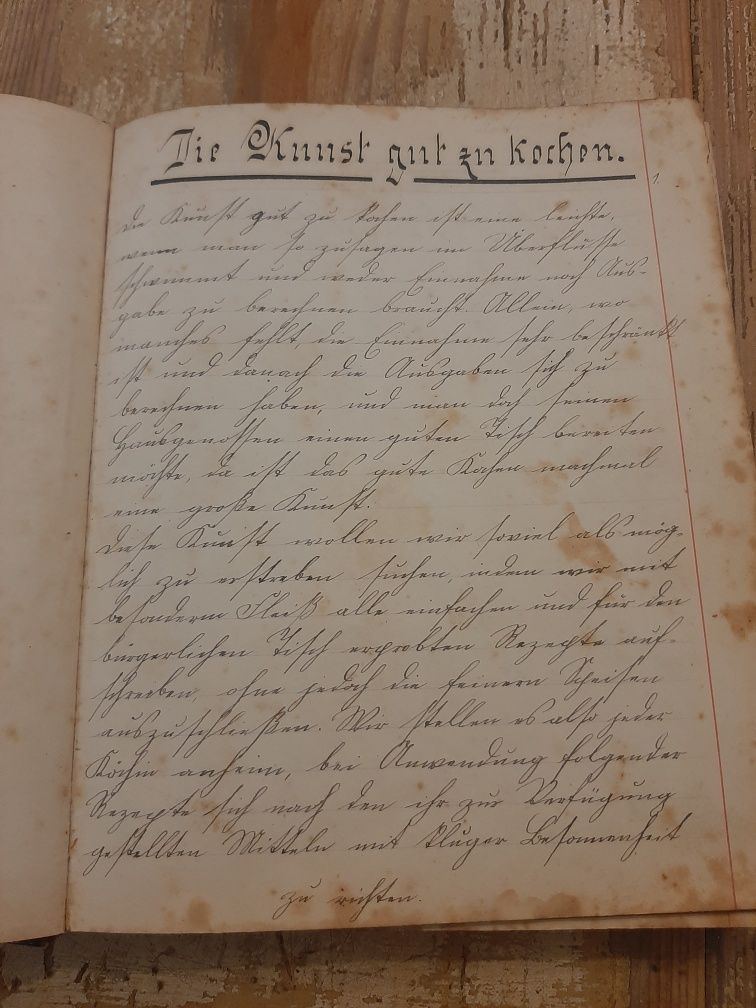 Die Kunst gut zu kochen.
1.
Die Kunst gut zu kochen ist eine leichte,
wenn man so zusagen im Überflusse
schwimmt und weder Einnahme noch Aus-
gabe zu berechnen braucht. Allein, wo
manches fehlt, die Einnahme sehr beschränkt
ist und danach die Ausgaben sich zu
berechnen haben, und man doch seinen
Hausgenossen einen guten Tisch bereiten
möchte, da ist das gute Kochen machmal
eine große Kunst.
Diese Kunst wollen wir soviel als mög-
lich zu erstreben suchen, indem wir mit
besonderm Fleiß alle einfachen und für den
bürgerlichen Tisch erprobten Rezepte auf-
schreiben, ohne jedoch die feinern Speisen
auszuschließen. Wir stellen es also jeder
Köchin anheim, bei Anwendung folgender
Rezepte sich nach den ihr zur Verfügung
gestellten Mitteln mit kluger Besonnenheit
zu richten.